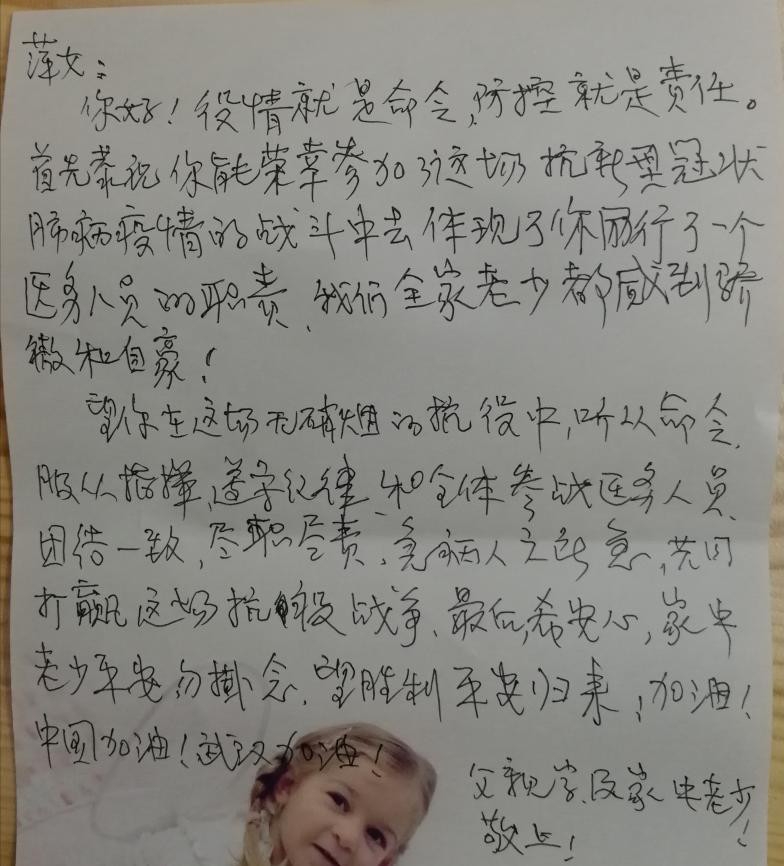 萍文：
你好！役情就是命令，防控就是责任。
首先恭祝你能荣幸参加了这场抗新型冠状
肺病疫情的战斗中去体现了你履行了一个
医务人员的职责、我们全家老少都感到骄
傲和自豪！
望你在这场无硝烟的抗役中，听从命令、
服从指挥、遵守纪律、和全体参战医务人员、
团结一致，尽职尽责、急病人之所急，共同
打赢这场抗役战争、最后，希安心，家中
老少平安勿掛念、望胜利平安归来，加油！
中国加油！武汉加油！
父親岩、及家中老少
敬上！